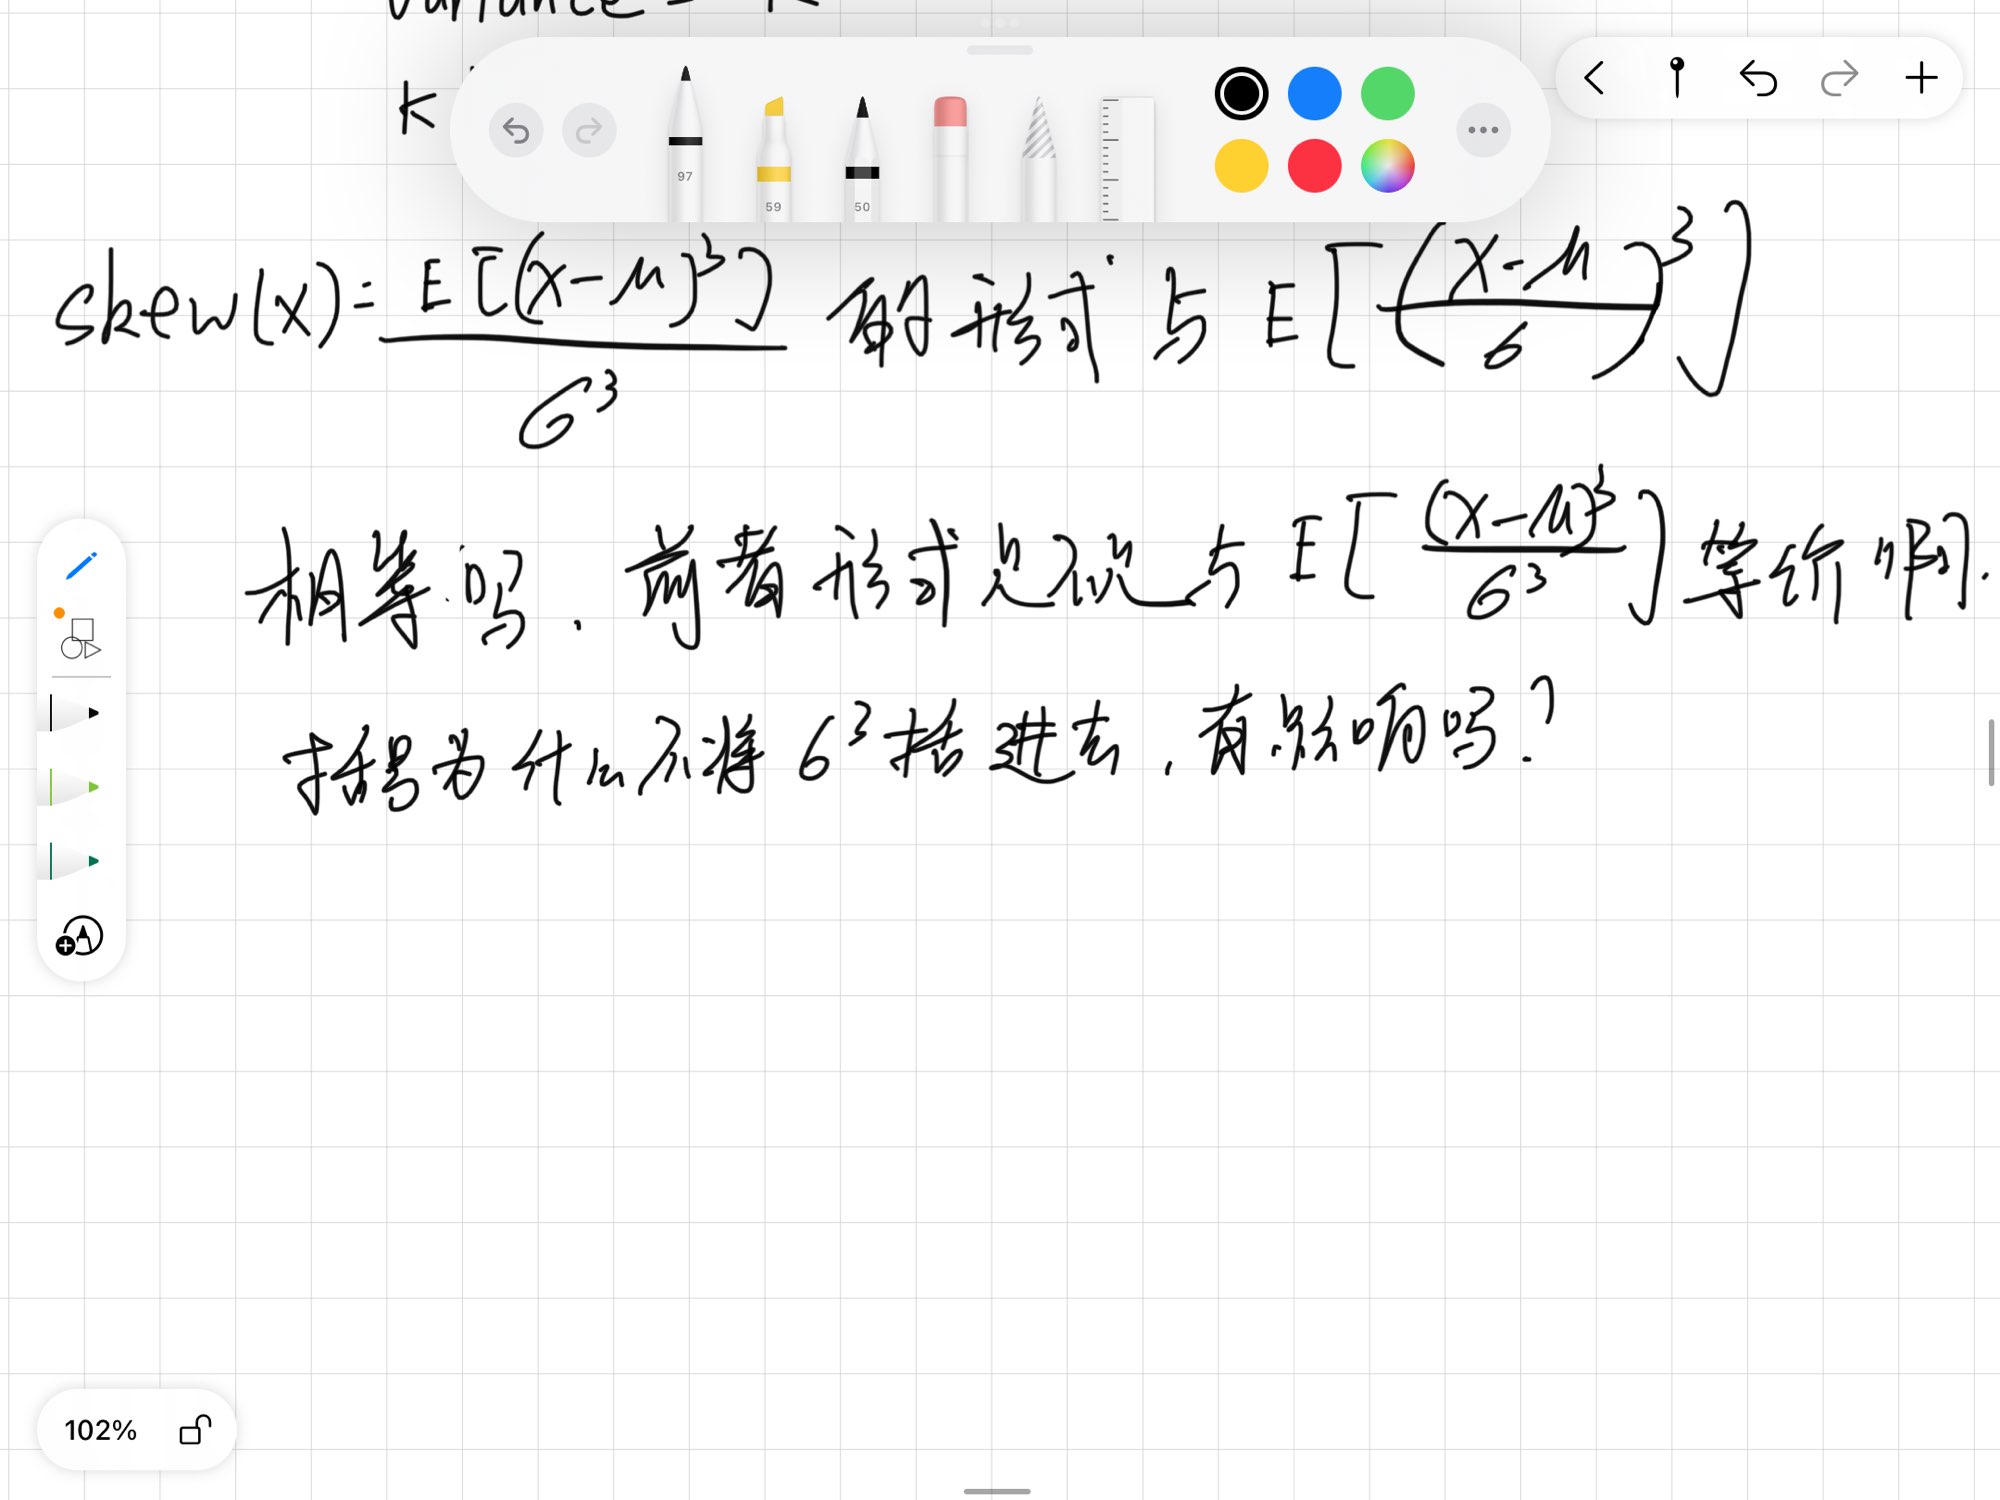 variance = k
k
97
59
50
skew(x) = E[(x-μ)³] / σ³ 的形式与 E[((x-μ)/σ)³]
相等吗. 前者形式是不是与 E[(x-μ)³/σ³] 等价啊.
括号为什么不将 σ³ 括进去, 有影响吗?
102%